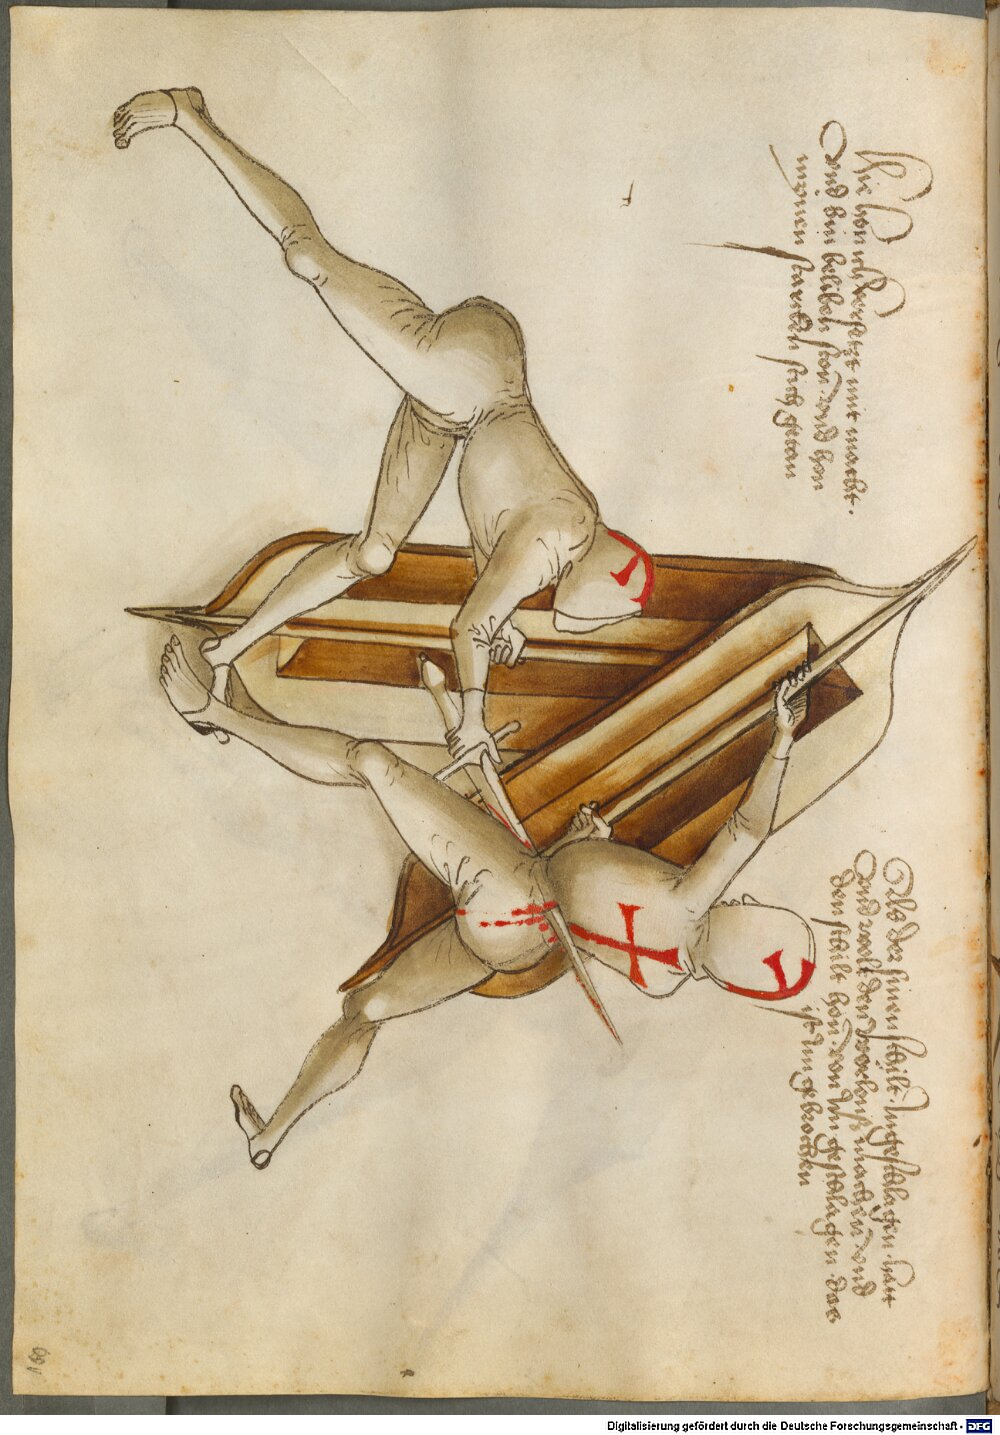 Hie hon ich versetzt mit macht .
vnd bin beliben ston . vnd hon
minen starcken stich getan
Als der sinen schilt . vngeschlagen . hatt
vnd wolt den machen vnd
den schilt hon . von Im geschlagen . das
ist Im gebrochen
160
Digitalisierung gefördert durch die Deutsche Forschungsgemeinschaft - DFG